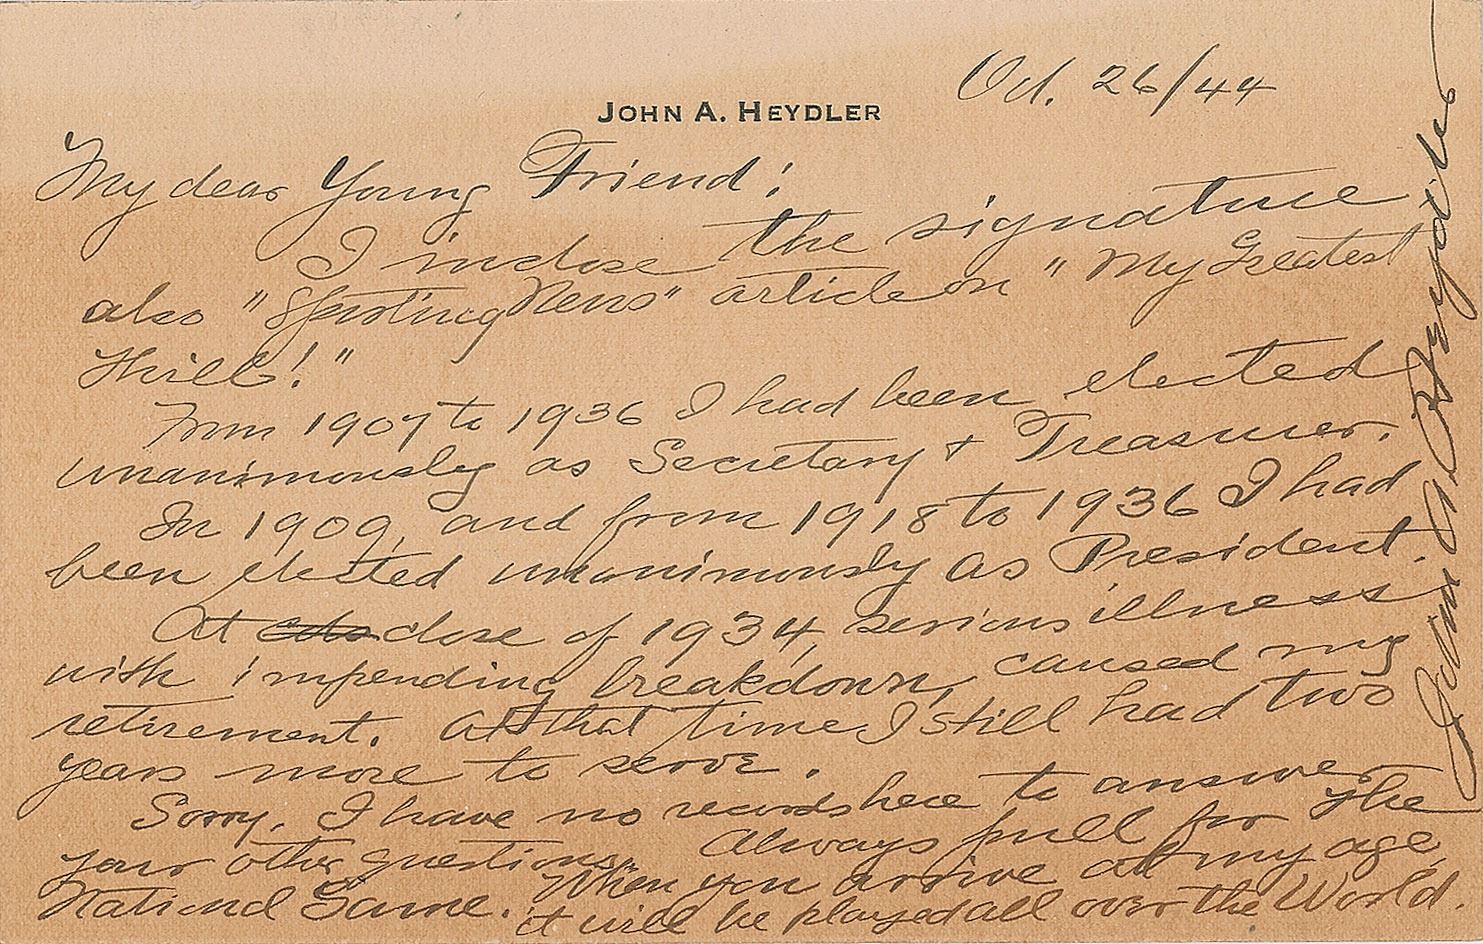 JOHN A. HEYDLER
Oct. 26/44
My dear Young Friend:
I inclose the signature
also "Sporting News" article on "My Greatest
Thrill!"
From 1907 to 1936 I had been elected
unanimously as Secretary & Treasurer.
In 1909, and from 1918 to 1936 I had
been elected unanimously as President.
At close of 1934, serious illness
with impending breakdown, caused my
retirement. At that time I still had two
years more to serve.
Sorry, I have no records here to answer
your other questions. Always pull for the
National Game. When you arrive at my age,
it will be played all over the World.
John A Heydler